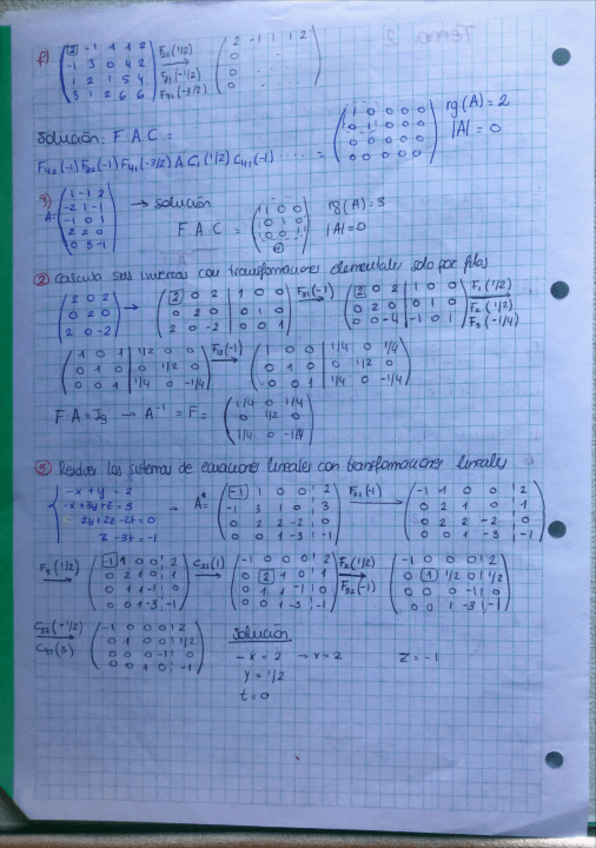 f) (2 -1 1 1 2 / -1 3 0 4 2 / 1 2 1 5 4 / 3 1 2 6 6) F21(1/2) F31(-1/2) F41(-3/2) → (2 -1 1 1 2 / 0 / 0 / 0)
Solución: F.A.C =
F42(-1) F32(-1) F41(-3/2) A C1(1/2) C41(-1) ..... = (1 0 0 0 0 / 0 1 0 0 0 / 0 0 0 0 0 / 0 0 0 0 0) rg(A) = 2 |A| = 0
g) A= (1 -1 2 / -2 1 -1 / -1 0 1 / 2 2 0 / 0 3 -1) → solución
F.A.C = (1 0 0 / 0 1 0 / 0 0 1 / 0) rg(A) = 3 |A|=0
② Calcula sus inversas con transformaciones elementales solo por filas
(2 0 2 / 0 2 0 / 2 0 -2) → (2 0 2 | 1 0 0 / 0 2 0 | 0 1 0 / 2 0 -2 | 0 0 1) F31(-1) → (2 0 2 | 1 0 0 / 0 2 0 | 0 1 0 / 0 0 -4 | -1 0 1) F1(1/2) F2(1/2) F3(-1/4)
(1 0 1 | 1/2 0 0 / 0 1 0 | 0 1/2 0 / 0 0 1 | 1/4 0 -1/4) F13(-1) → (1 0 0 | 1/4 0 1/4 / 0 1 0 | 0 1/2 0 / 0 0 1 | 1/4 0 -1/4)
F A = I3 → A⁻¹ = F = (1/4 0 1/4 / 0 1/2 0 / 1/4 0 -1/4)
⑤ Resolver los sistemas de ecuaciones lineales con transformaciones lineales
-x + y = 2
-x + 3y + z = 3
2y + 2z - 2t = 0
z - 3t = -1
→ A*= (-1 1 0 0 | 2 / -1 3 1 0 | 3 / 0 2 2 -2 | 0 / 0 0 1 -3 | -1) F21(-1) → (-1 1 0 0 | 2 / 0 2 1 0 | 1 / 0 2 2 -2 | 0 / 0 0 1 -3 | -1)
F3(1/2) → (-1 1 0 0 | 2 / 0 2 1 0 | 1 / 0 1 1 -1 | 0 / 0 0 1 -3 | -1) C21(1) → (-1 0 0 0 | 2 / 0 2 1 0 | 1 / 0 1 1 -1 | 0 / 0 0 1 -3 | -1) F2(1/2) F32(-1) → (-1 0 0 0 | 2 / 0 1 1/2 0 | 1/2 / 0 0 0 -1 | 0 / 0 0 1 -3 | -1)
C32(-1/2) C43(3) → (-1 0 0 0 | 2 / 0 1 0 0 | 1/2 / 0 0 0 -1 | 0 / 0 0 1 0 | -1)
Solución
-x = 2 → x = 2 z = -1
y = 1/2
t = 0